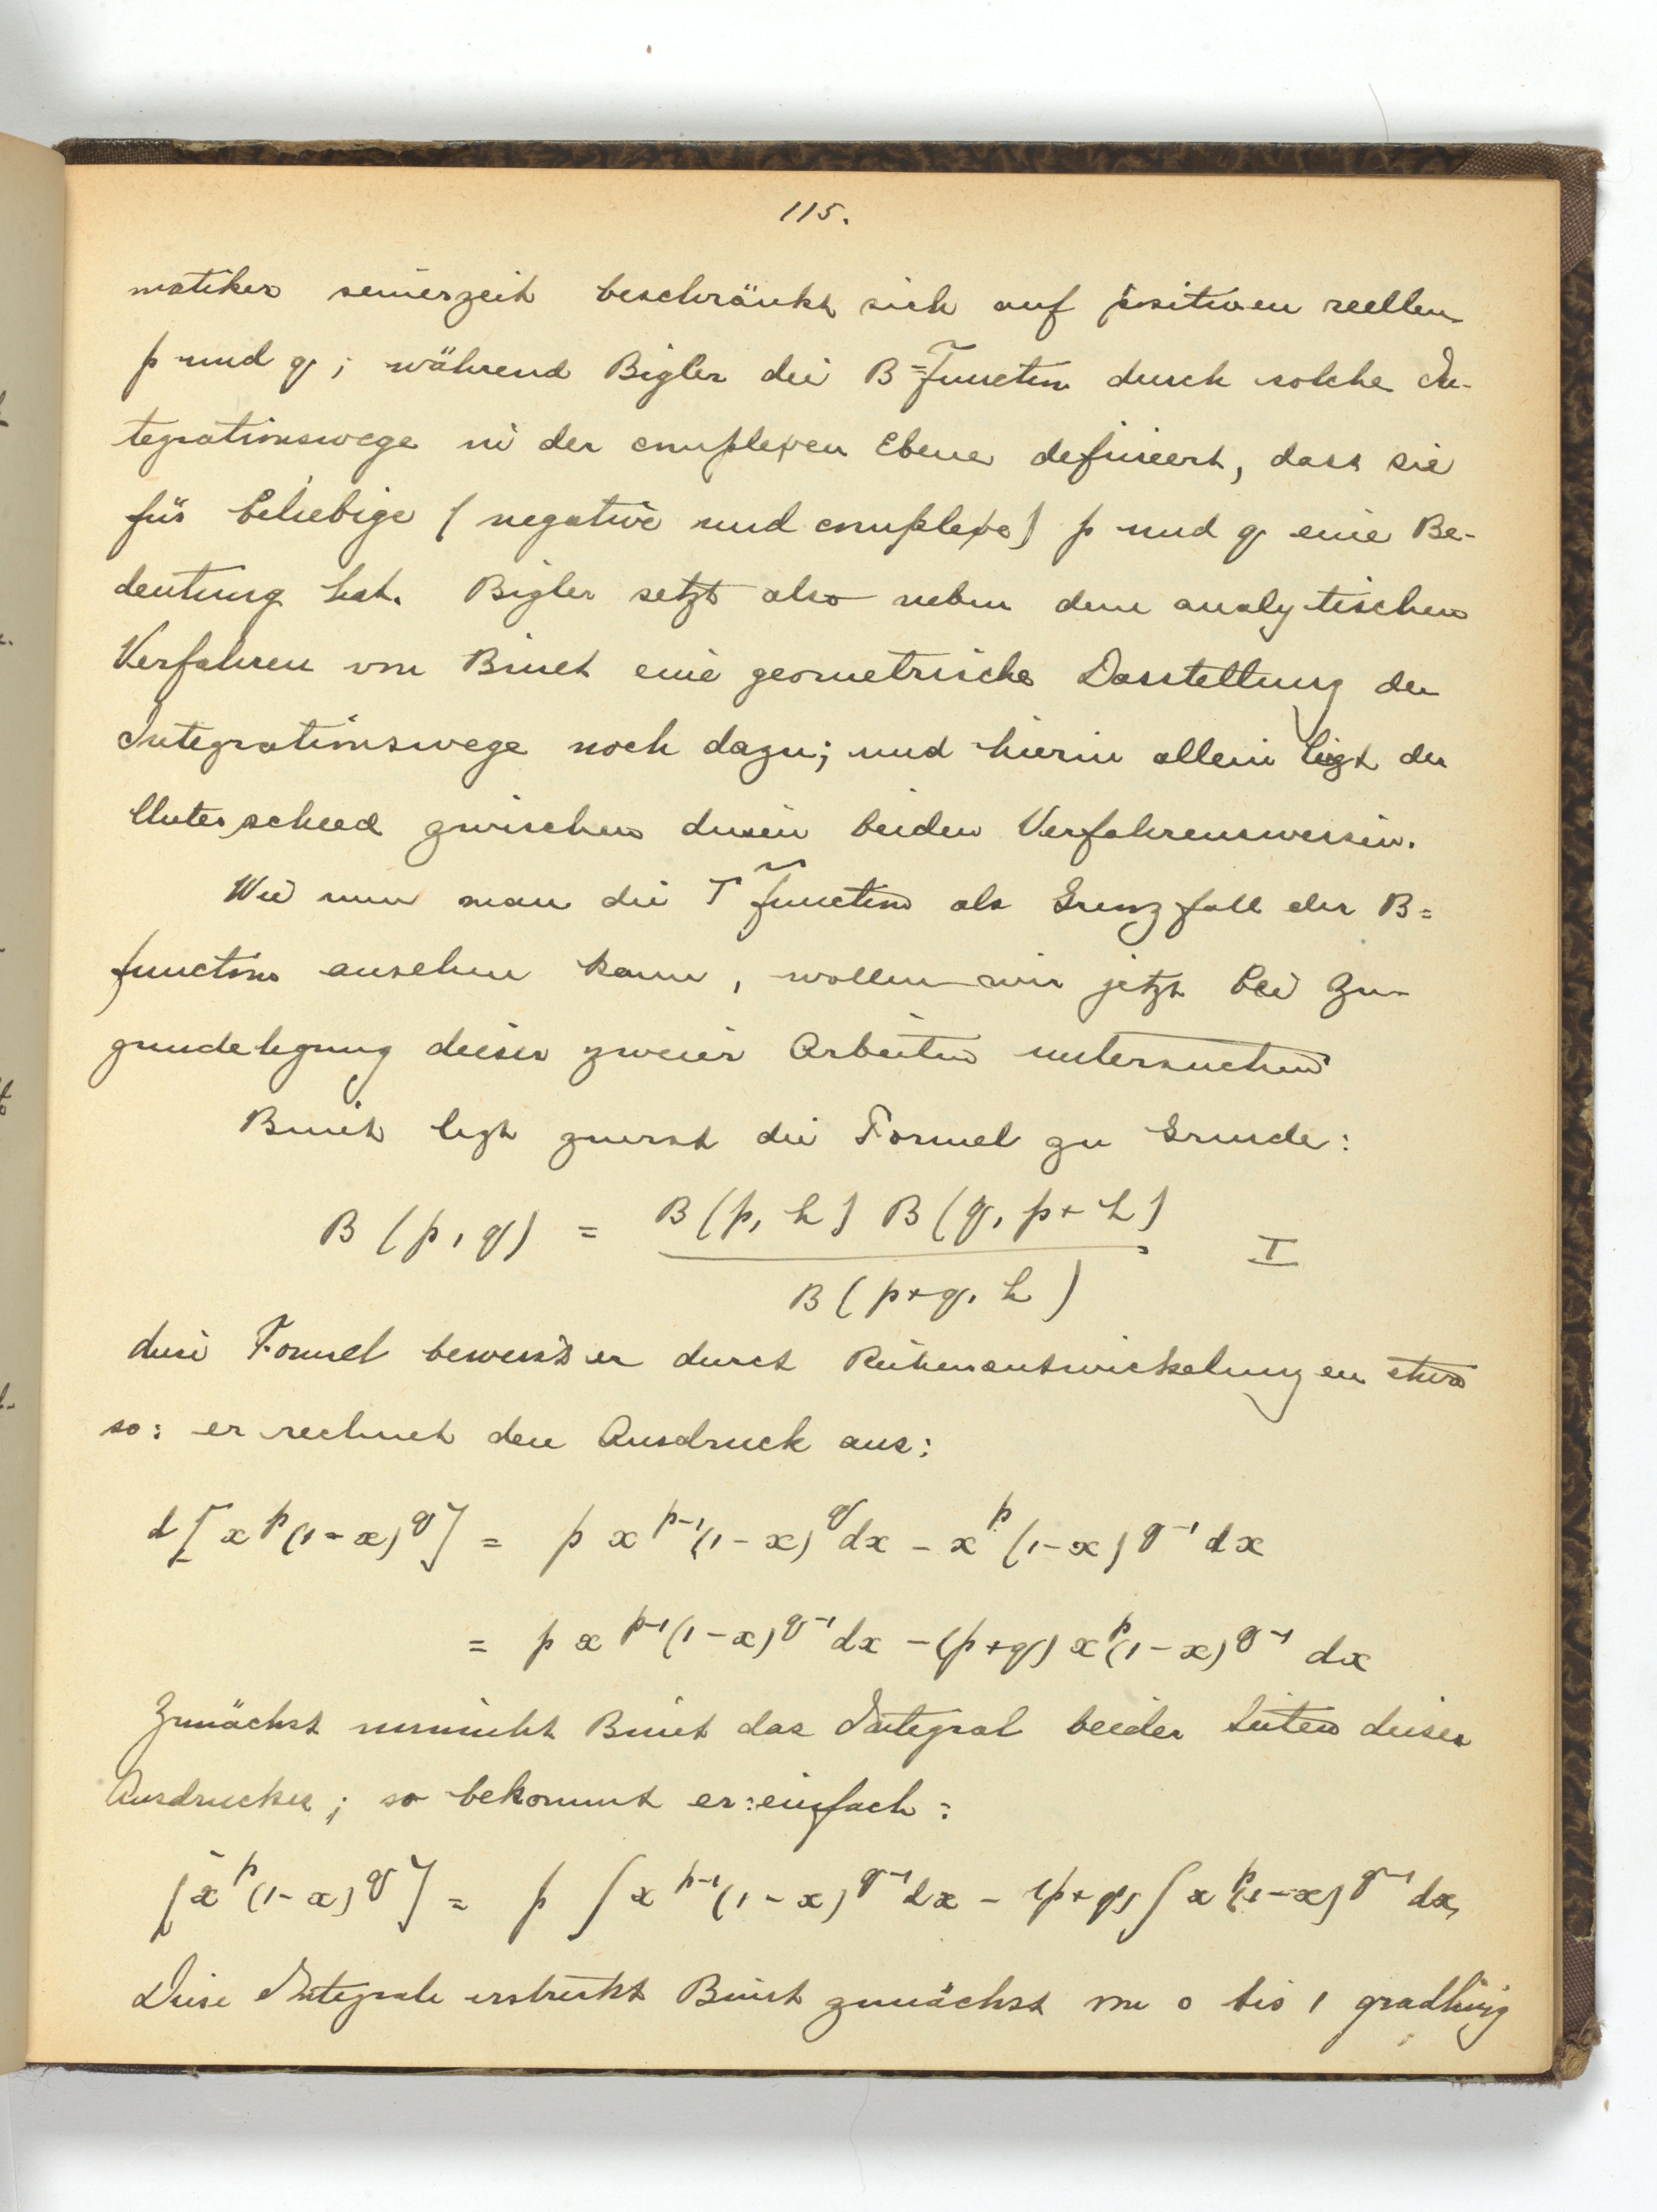 115.
matiker seinerzeit beschränkt sich auf positiven reellen
p und q; während Bigler die B=Function durch solche In-
tegrationswege in der complexen Ebene definiert, dass sie
für beliebige (negative und complexe) p und q eine Be-
deutung hat. Bigler setzt also neben dem analytischen
Verfahren von Binet eine geometrische Darstellung der
Integrationswege noch dazu; und hierin allein liegt der
Unterschied zwischen diesen beiden Verfahrensweisen.
Wie nun man die Γ function als Grenzfall der B=
function ansehen kann, wollen wir jetzt bei Zu-
grundelegung dieser zweier Arbeiten untersuchen
Binet legt zuerst die Formel zu Grunde:
B (p, q) = B(p, h) B(q, p+h) / B(p+q, h) I
diese Formel beweist er durch Reihenentwickelungen etwa
so: er rechnet den Ausdruck aus:
d[x^p (1-x)^q] = p x^{p-1} (1-x)^q dx - x^p (1-x)^{q-1} dx
= p x^{p-1} (1-x)^{q-1} dx - (p+q) x^p (1-x)^{q-1} dx
Zunächst nimmt Binet das Integral beider Seiten dieser
Ausdruckes; so bekommt er: einfach:
[x^p (1-x)^q] = p ∫ x^{p-1} (1-x)^{q-1} dx - (p+q) ∫ x^p (1-x)^{q-1} dx,
Diese Integrale erstreckt Binet zunächst von 0 bis 1 gradlinig